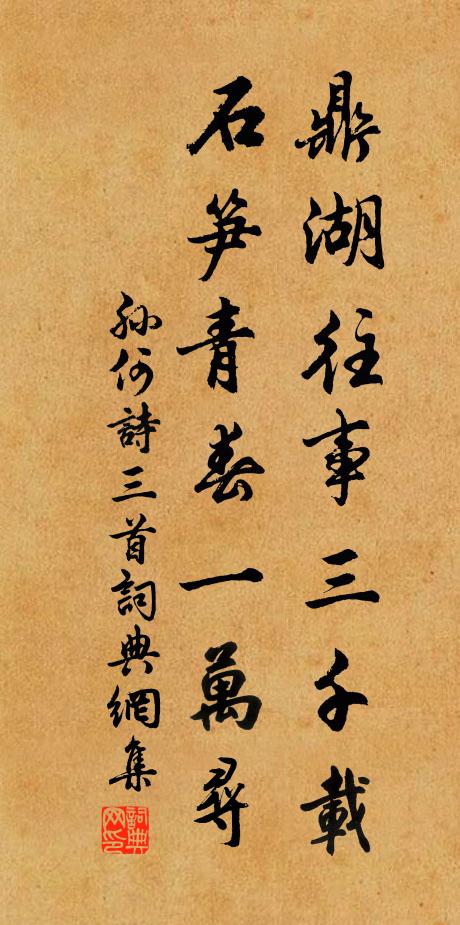 鼎湖往事三千載
石笋青春一萬尋
孫何詩三首詞典網集
詞典网印